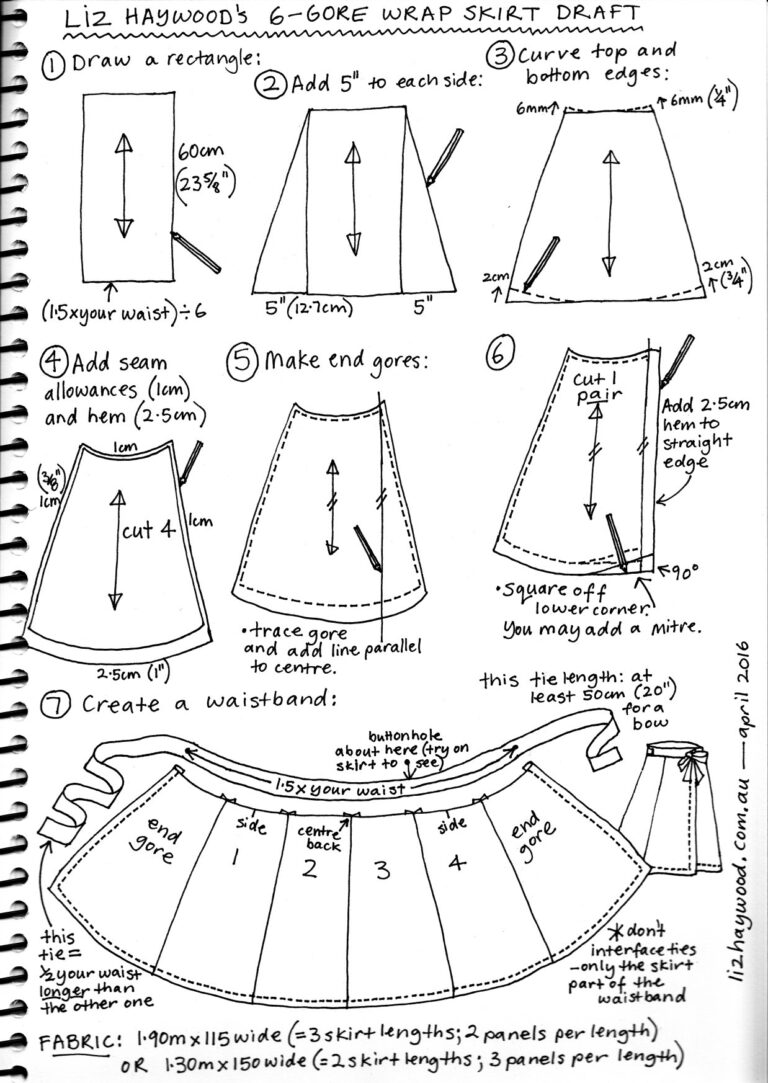 LIZ HAYWOOD'S 6-GORE WRAP SKIRT DRAFT
① Draw a rectangle:
60cm
(23 5/8")
(1.5xyour waist)÷6
② Add 5" to each side:
5"(12.7cm)
5"
③ Curve top and
bottom edges:
6mm
6mm (¼")
2cm
2cm
(¾")
④ Add seam
allowances (1cm)
and hem (2.5cm)
1cm
(3/8")
1cm
1cm
cut 4
2.5cm (1")
⑤ Make end gores:
•trace gore
and add line parallel
to centre.
⑥
cut 1
pair
Add 2.5cm
hem to
straight
edge
90°
•Square off
lower corner.
You may add a mitre.
⑦ Create a waistband:
this tie length: at
least 50cm (20")
for a
bow
buttonhole
about here (try on
skirt to see)
1.5x your waist
end
gore
side
1
centre
back
2
3
side
4
end
gore
this
tie=
½ your waist
longer than
the other one
*don't
interface ties
-only the skirt
part of the
waistband
FABRIC: 1.90m x 115 wide (=3 skirt lengths; 2 panels per length)
OR 1.30m x 150 wide (=2 skirt lengths; 3 panels per length)
lizhaywood.com.au — april 2016